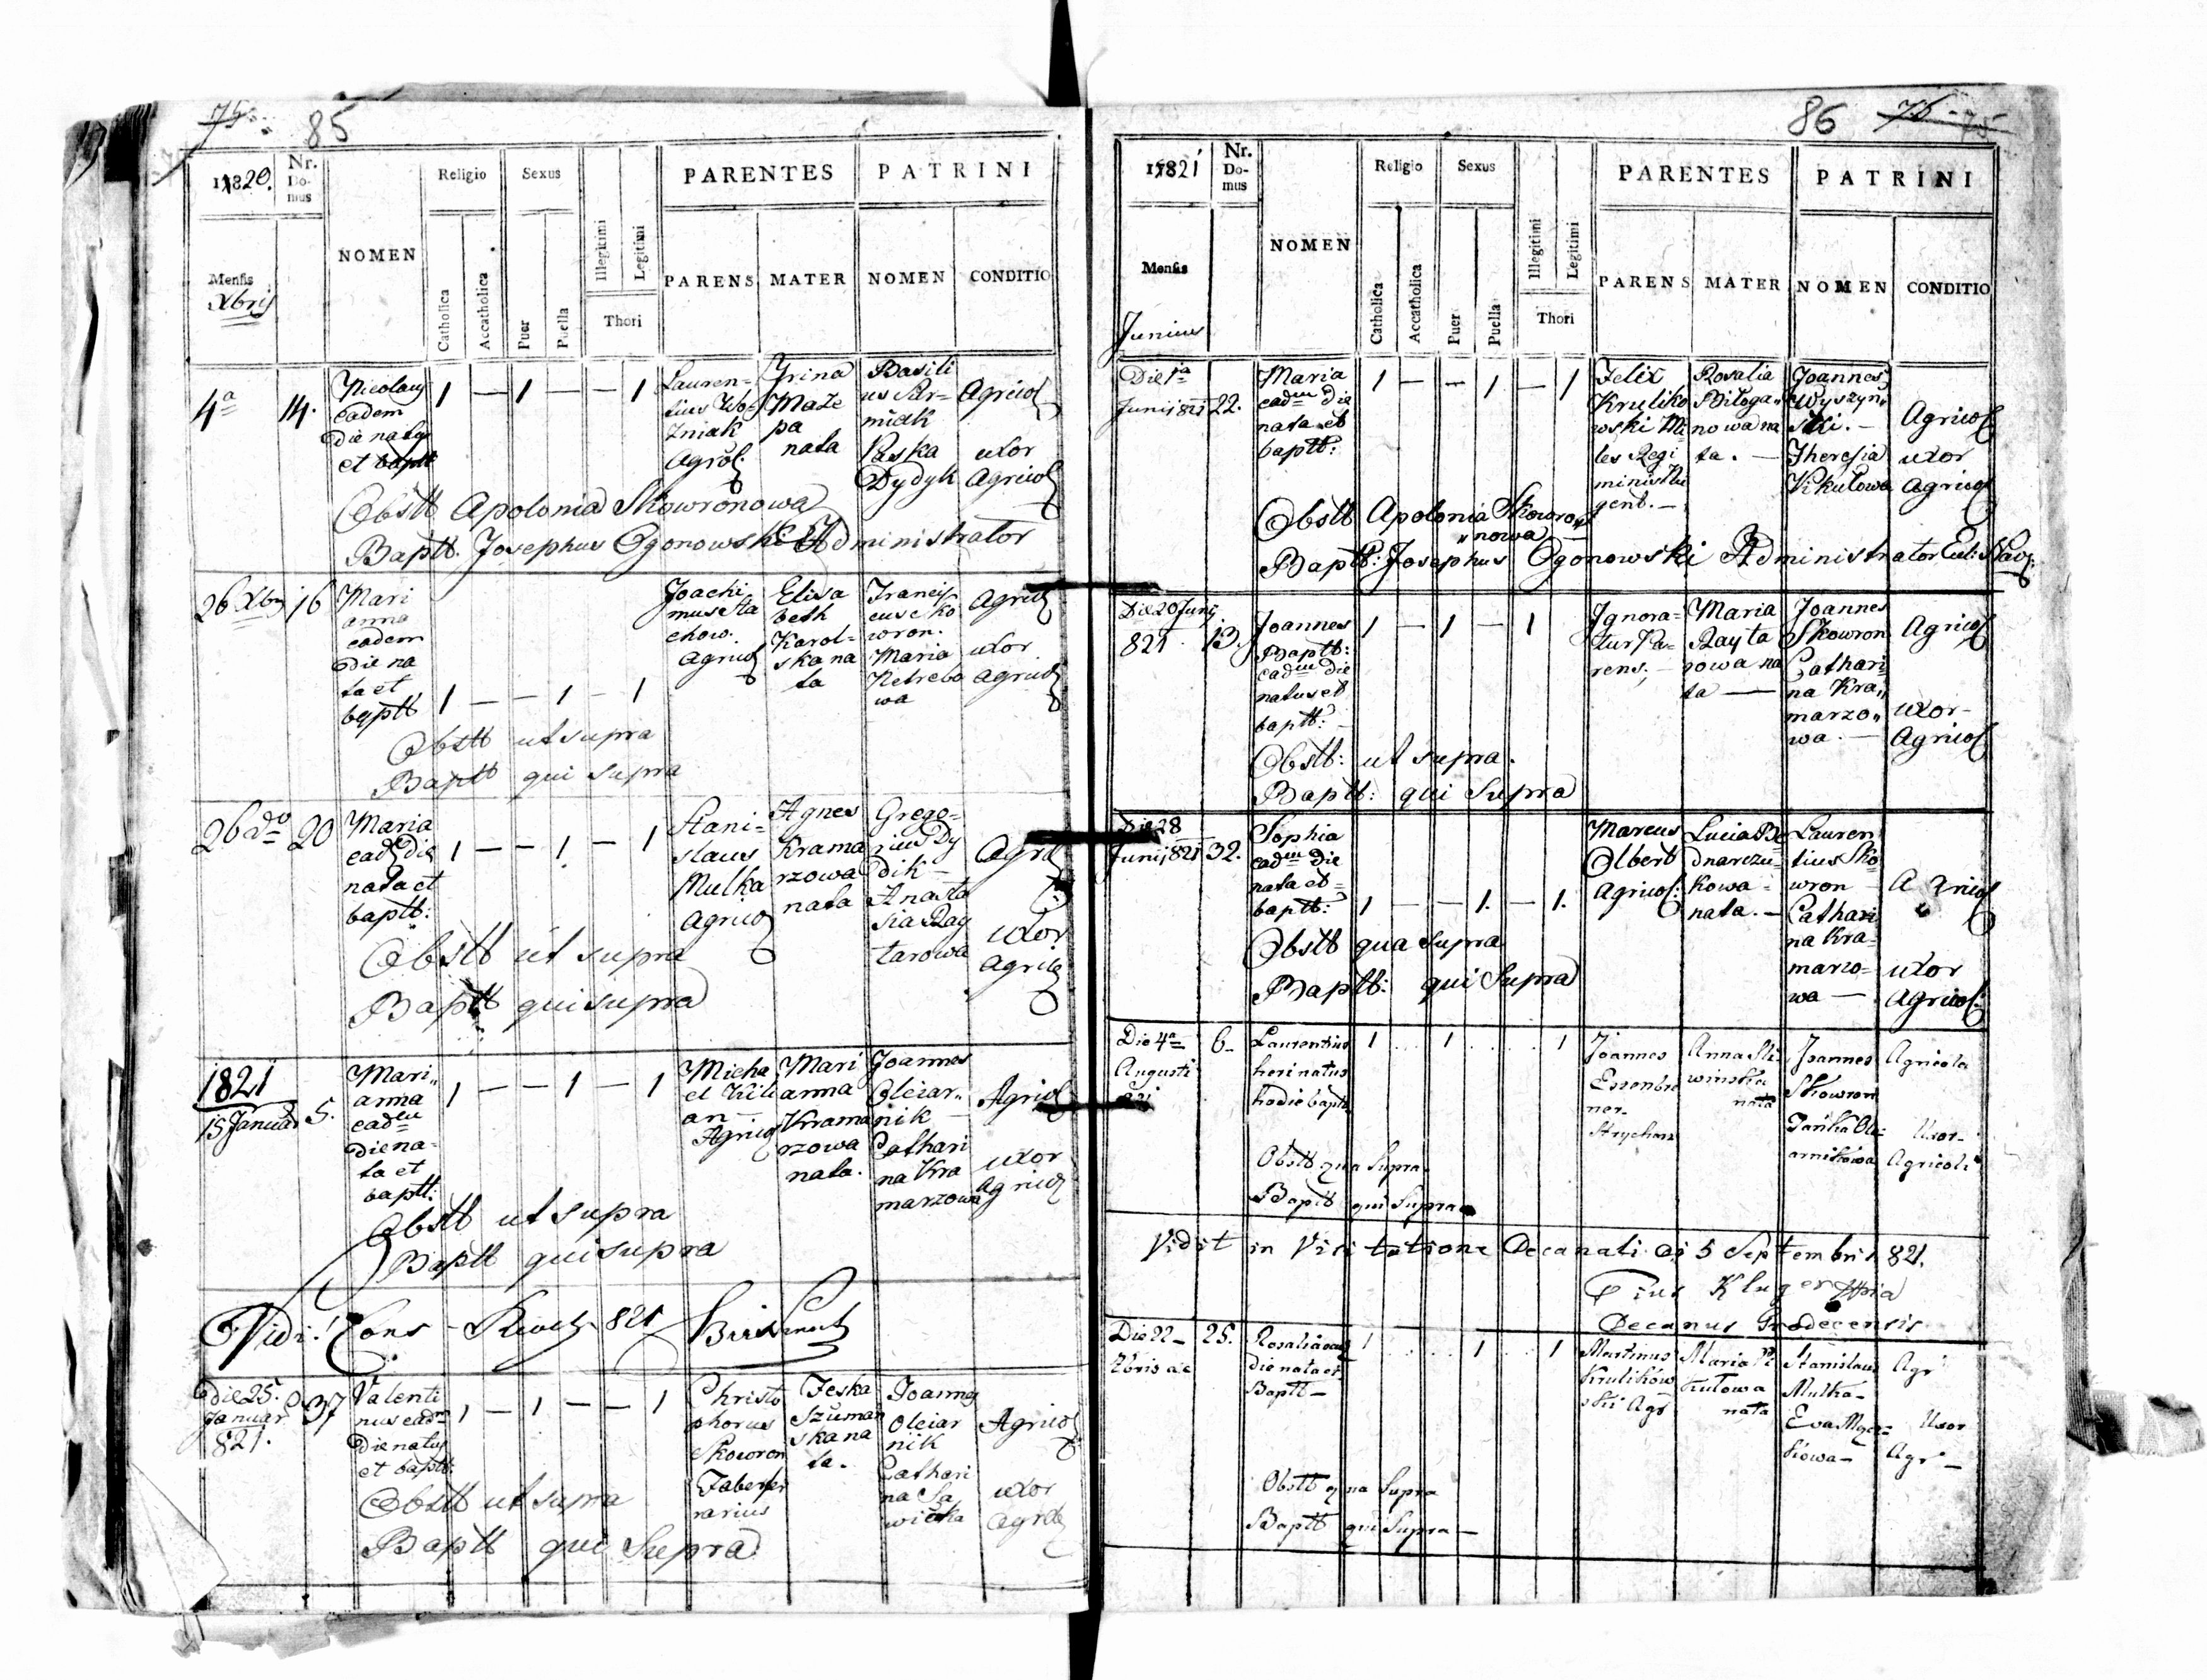 85
1820.
Nr. Do- mus
Religio
Sexus
PARENTES
PATRINI
Mensis
Xbris
NOMEN
Catholica
Accatholica
Puer
Puella
Illegitimi
Legitimi
Thori
PARENS
MATER
NOMEN
CONDITIO
4a 14.
Nicolaus
eadem
Die natus
et baptt
1 — 1 — — 1
Lauren=
tius Wo=
zniak
Agrol
Yrina
Maze
pa
nata
Basili
us Par=
miak
Paska
Dydyk
Agricol
uxor
Agricol
Obstt Apolonia Skowronowa
Baptt. Josephus Ogonowski Administrator
26 Xbris 16
Mari
anna
eadem
Die na
ta et
baptt
1 — — 1 — 1
Joachi
mus Sta
chow.
Agricol
Elisa
beth
Karol=
ska na
ta
Francis
cus Sko
wron.
Maria
Netrebo
wa
Agricol
uxor
Agricol
Obstt ut supra
Baptt qui supra
26 do 20
Maria
ead die
nata et
baptt:
1 — — 1 — 1
Stani=
slaus
Mulka
Agricol
Agnes
Krama
rzowa
nata
Grego=
rius Dy
dik —
Anasta
sia Ray
tarowa
Agrol
uxor
Agricol
Obstt ut supra
Baptt qui supra
1821
15 Januar 5.
Mari„
anna
eadem
Die na=
ta et
baptt:
1 — — 1 — 1
Micha
el Kili
an —
Agricol
Mari
anna
Krama
rzowa
nata.
Joannes
Oleiar„
nik —
Cathari
na Kra
marzowa
Agricol
uxor
Agricol
Obstt ut supra
Baptt qui supra
Vidi!
821
Die 25.
Januar
821.
37
Valenti
nus eadm
Die natus
et baptt.
1 — 1 — — 1
Christo
phorus
Skowron
Faber fer
rarius
Feska
Szuman
ska na
ta.
Joannes
Oleiar
nik
Cathari
na Sa
wicka
Agricol
uxor
Agricol
Obstt ut supra
Baptt qui Supra
86
1821
Nr. Do- mus
Religio
Sexus
PARENTES
PATRINI
Mensis
Junius
NOMEN
Catholica
Accatholica
Puer
Puella
Illegitimi
Legitimi
Thori
PARENS
MATER
NOMEN
CONDITIO
Die 1a
Junij 821 22.
Maria
eadem die
nata et
baptt:
1 — — 1 — 1
Felix
Kruliko
wski Mi
les Regi
minis
gent. —
Rosalia
Biloga„
nowa na
ta. —
Joannes
Wyszyn„
ski. —
Theresia
Vikulowa
Agricol
uxor
Agricol
Obstt Apolonia Skowro„
„nowa —
Baptt: Josephus Ogonowski Administrator
Die 20 Junij
821. 13.
Joannes
Baptt:
eadem die
natus et
baptt:
1 — 1 — 1
Ignora=
tur Pa=
rens; —
Maria
Rayta
rowa na
ta —
Joannes
Skowron
Cathari
na Kra„
marzo„
wa. —
Agricol
uxor —
Agricol
Obstt: ut supra.
Baptt: qui Supra
Die 28
Junij 821 32.
Sophia
eadem die
nata et =
baptt:
1 — — 1. — 1.
Marcus
Olbert
Agricol:
Lucia Be
dnarczu=
kowa =
nata. —
Lauren
tius Sko
wron
Cathari
na Kra=
marzo=
wa —
Agricol
uxor
Agricol:
Obstt qua Supra
Baptt: qui Supra
Die 4a
Augusti
821
6.
Laurentius
heri natus
hodie baptt
1 1 1
Joannes
Anna Sli
winska
nata
Joannes
Skowron
Agricola
Uxor —
Agricola
Obstt qua Supra
Baptt qui Supra
Vidit in Visitatione Decanali di 5 Septembris 821.
Pius Kluger
Decanus Grodecensis
Die 22 — 25.
Rosalia ead
die nata et
Baptt —
1 1 1
Martinus
Krulikow
ski Agr
Maria Vi
kulowa
nata
Stanislaus
Mulka —
Agr
Uxor
Agr —
Obstt qua Supra
Baptt qui Supra —